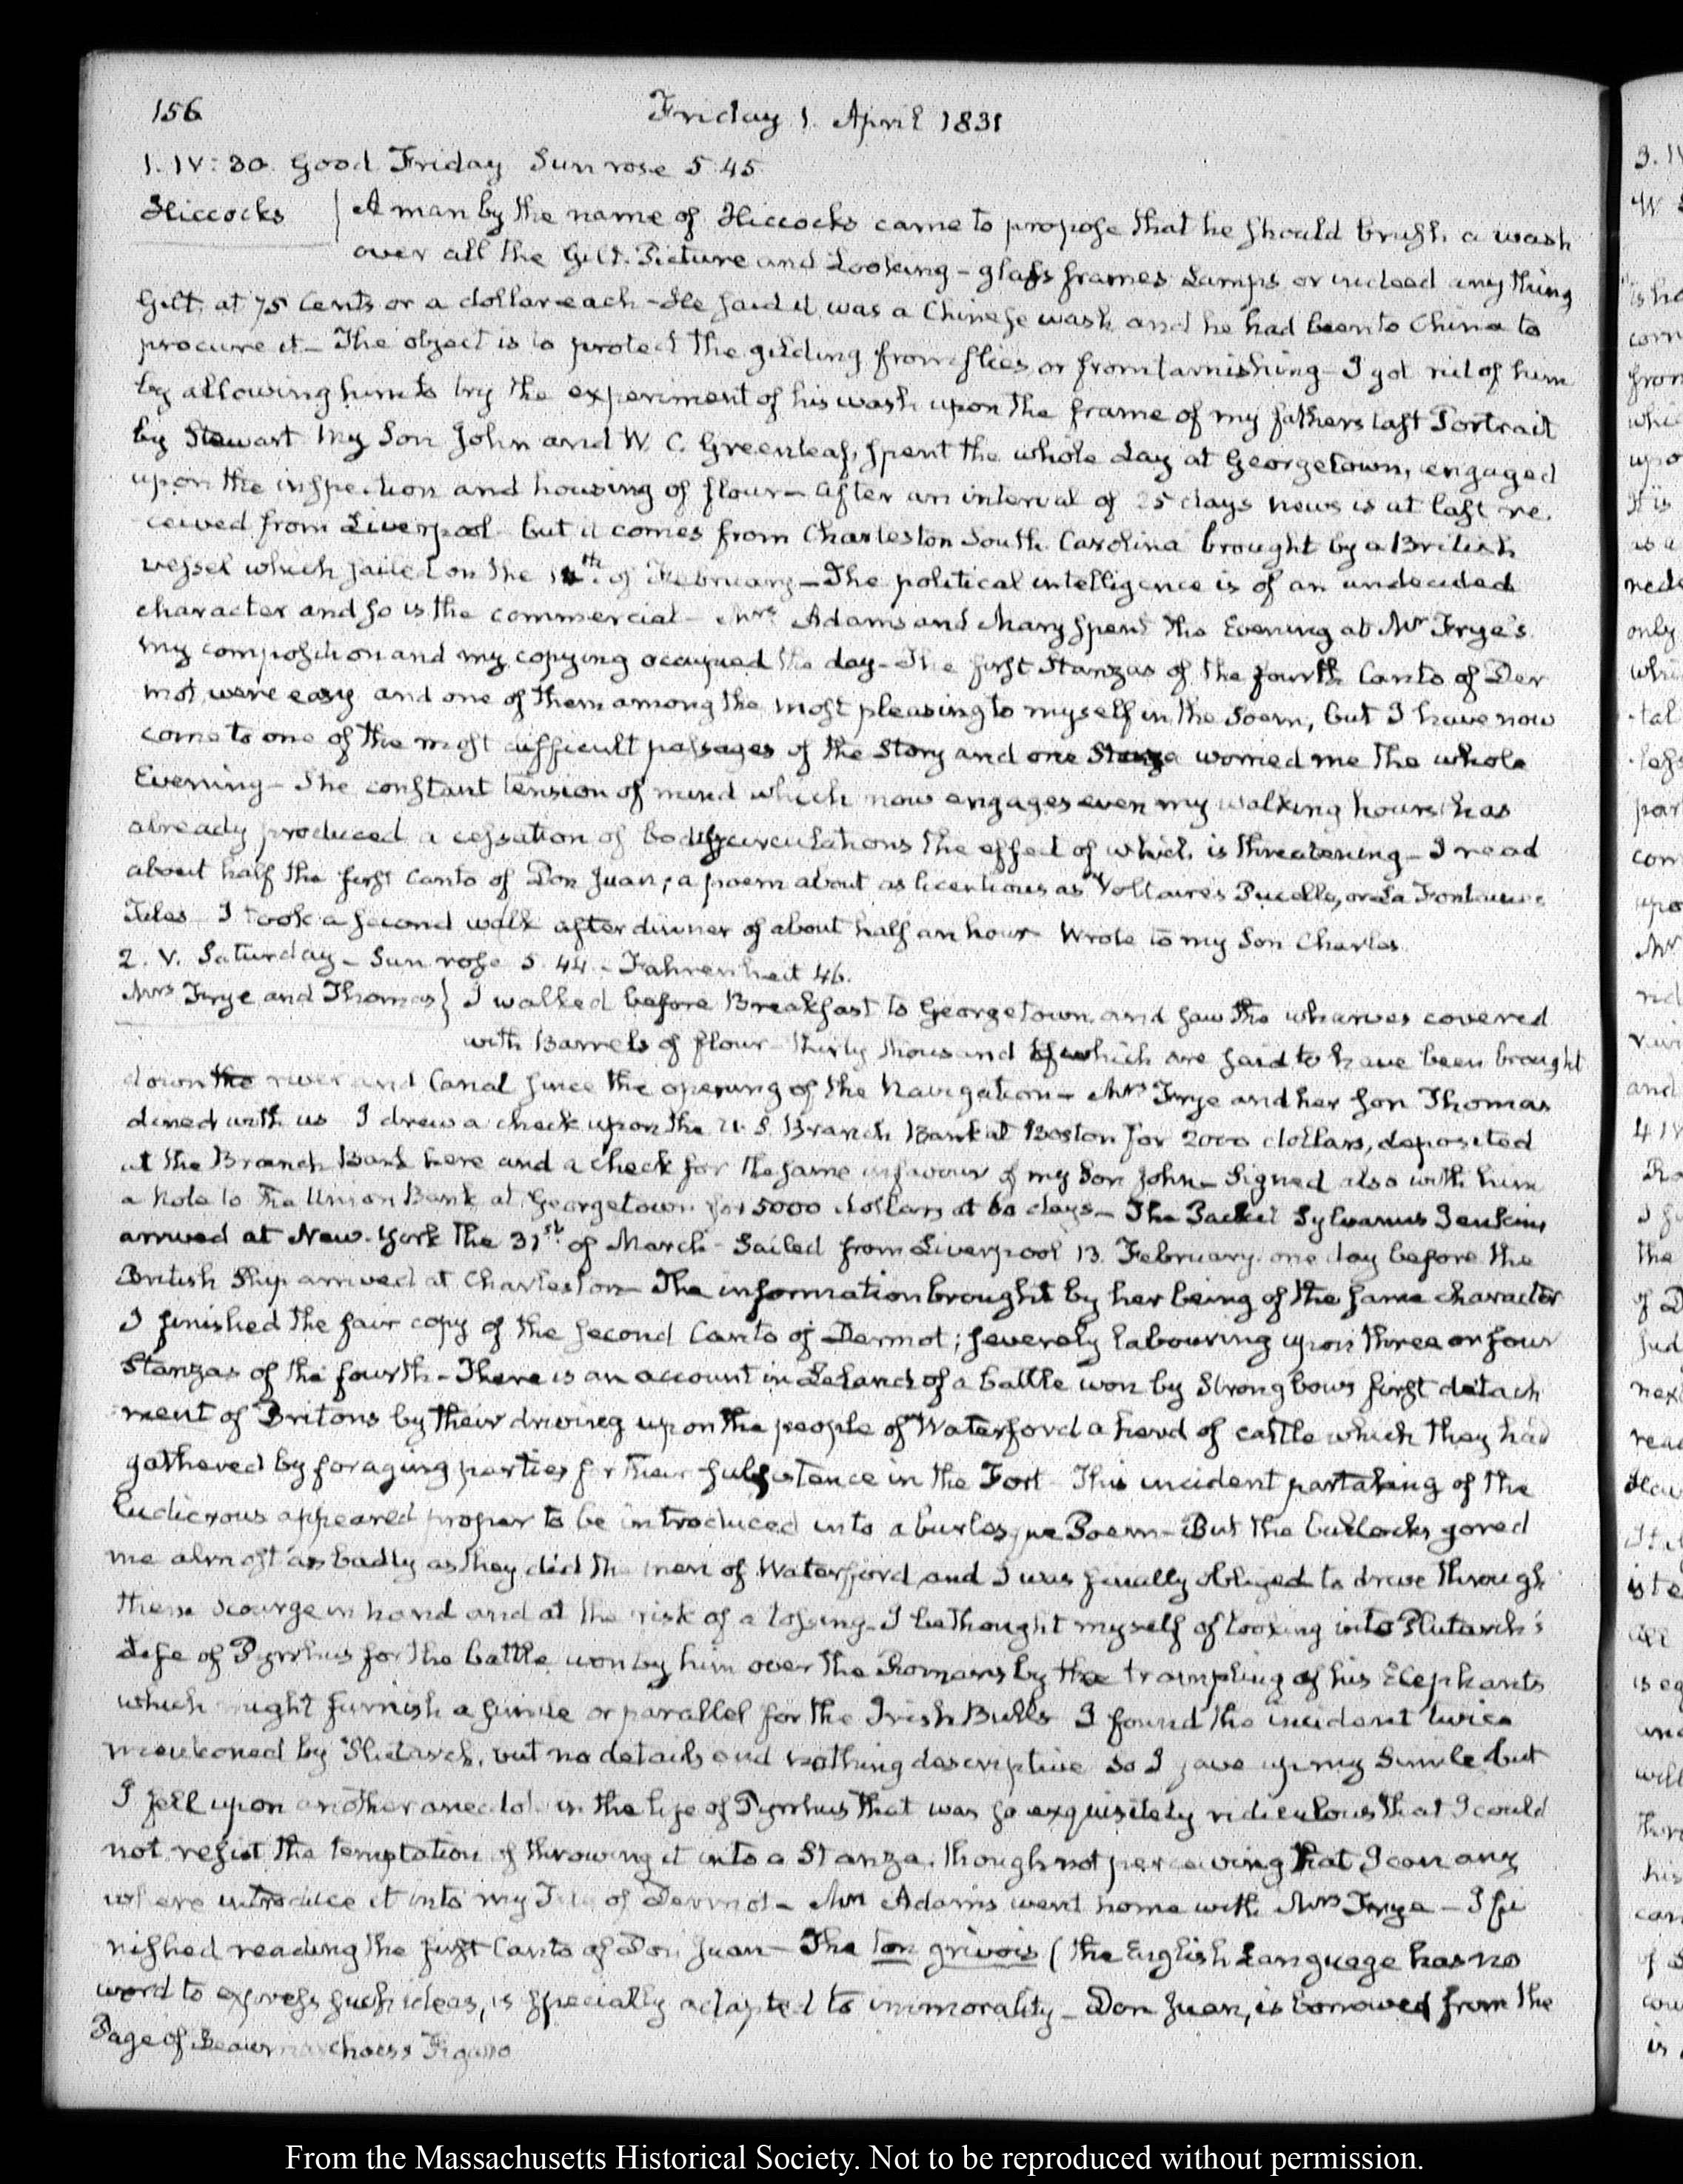 156
Friday 1. April 1831
1. IV: 30. Good Friday Sun rose 5.45
Hiccocks } A man by the name of Hiccocks came to propose that he should brush a wash
over all the Gilt. Picture and Looking-glass frames Lamps or indeed any thing
Gilt, at 75 Cents or a dollar each - He said it was a Chinese wash and he had been to China to
procure it - The object is to protect the gilding from flies or from tarnishing - I got rid of him
by allowing him to try the experiment of his wash upon the frame of my fathers last Portrait
by Stewart My Son John and W. C. Greenleaf, spent the whole day at Georgetown, engaged
upon the inspection and housing of flour - After an interval of 25 days news is at last re-
ceived from Liverpool but it comes from Charleston South Carolina brought by a British
vessel which sailed on the th. of February - The political intelligence is of an undecided
character and so is the commercial - Mrs. Adams and Mary spent the Evening at Mr Frye's.
my composition and my copying occupied the day - The first Stanzas of the fourth Canto of Der
mot, were easy and one of them among the most pleasing to myself in the Poem, but I have now
come to one of the most difficult passages of the Story and one Stanza worried me the whole
Evening - The constant tension of mind which now engages even my walking hours has
already produced a cessation of bodily circulations the effect of which is threatening - I read
about half the first Canto of Don Juan; a poem about as licentious as Voltaire's Pucelle, or La Fontaine's
Tales I took a second walk after dinner of about half an hour Wrote to my Son Charles.
2. V. Saturday - Sun rose 5.44 - Fahrenheit 46.
Mrs Frye and Thomas } I walked before Breakfast to Georgetown, and saw the wharves covered
with Barrels of flour - thirty thousand of which are said to have been brought
down the river and Canal since the opening of the Navigation - Mrs Frye and her Son Thomas
dined with us I drew a check upon the U. S. Branch Bank at Boston for 2000 dollars, deposited
at the Branch Bank here and a check for the same in favour of my Son John - Signed also with him
a Note to the Union Bank at Georgetown for 5000 dollars at 60 days - The Packet Sylvanus Jenkins
arrived at New-York the 31st. of March - Sailed from Liverpool 13. February. one day before the
British Ship arrived at Charleston - The information brought by her being of the same character
I finished the fair copy of the second Canto of Dermot; severely labouring upon three or four
Stanzas of the fourth - There is an account in Leland of a battle won by Strongbows first detach
ment of Britons by their driving upon the people of Waterford a herd of cattle which they had
gathered by foraging parties for their subsistence in the Fort - This incident partaking of the
ludicrous appeared proper to be introduced into a burlesque Poem - But the bullocks gored
me almost as badly as they did the men of Waterford and I was finally obliged to drive through
them scourge in hand and at the risk of a tossing - I bethought myself of looking into Plutarch's
Life of Pyrrhus for the battle won by him over the Romans by the trampling of his Elephants
which might furnish a simile or parallel for the Irish Bulls I found the incident twice
mentioned by Plutarch, but no details and nothing descriptive so I gave up my Simile but
I fell upon another anecdote in the life of Pyrrhus that was so exquisitely ridiculous that I could
not resist the temptation of throwing it into a Stanza. though not perceiving that I can any
where introduce it into my Tale of Dermot - Mrs Adams went home with Mrs Frye - I fi
nished reading the first Canto of Don Juan - The ton grivois (the English Language has no
word to express such ideas, is specially adapted to immorality - Don Juan, is borrowed from the
Page of Beaumarchais's Figaro
From the Massachusetts Historical Society. Not to be reproduced without permission.